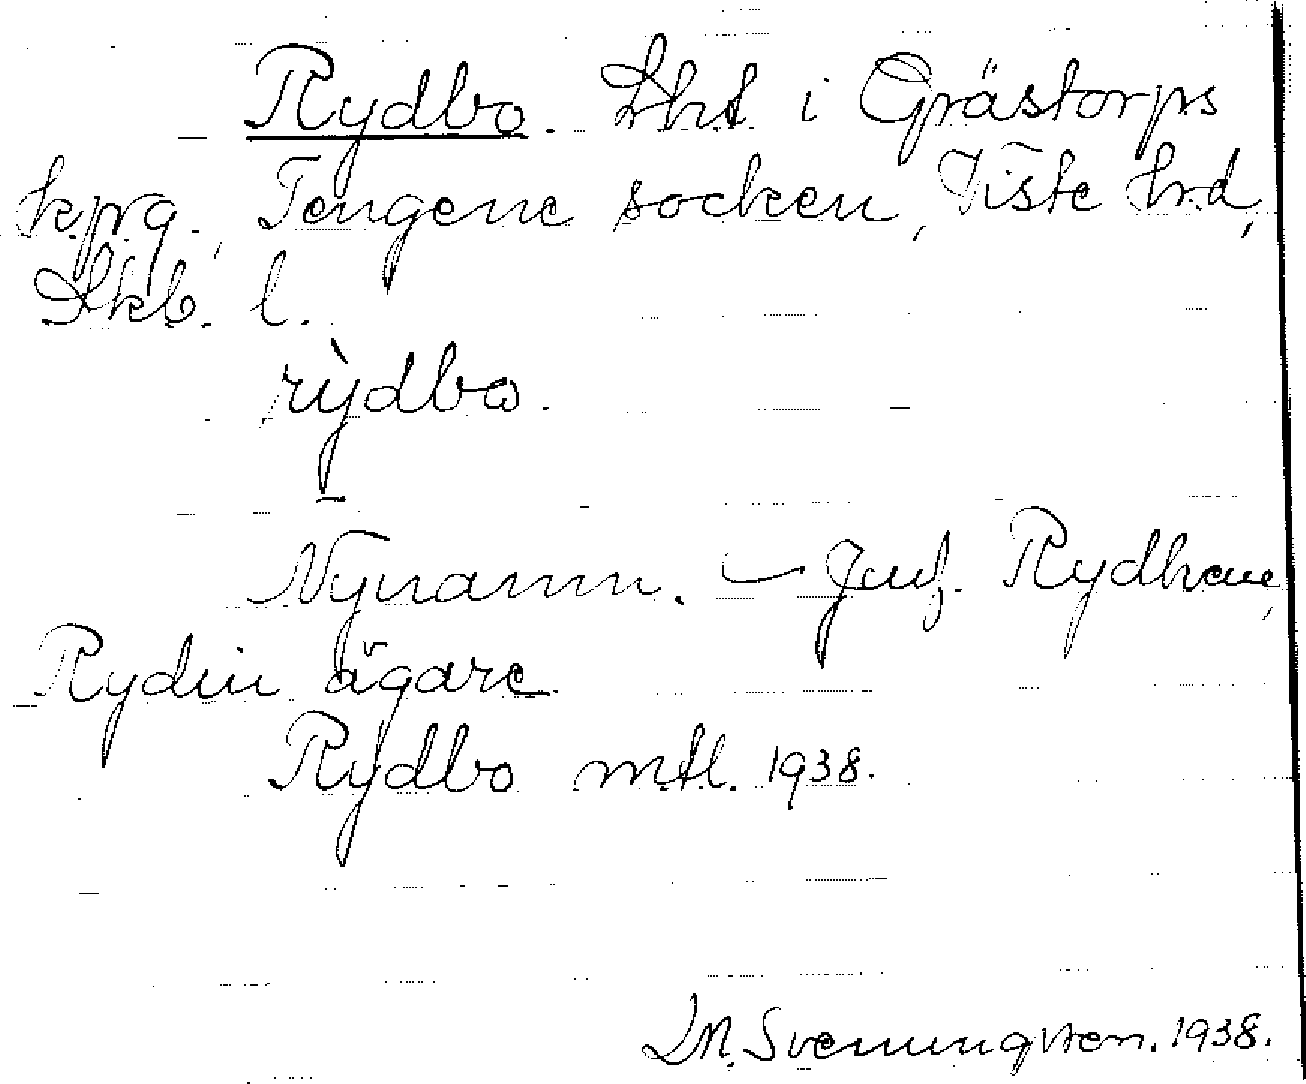 Rydbo. Lht i Grästorps
kpg., Tengene socken, Viste hrd,
Skb. l.
rỳdbo.
Nynamn. – Jmf. Rydhave,
Rydin ägare
Rydbo mtl. 1938.
D.N. Svenungsson. 1938.